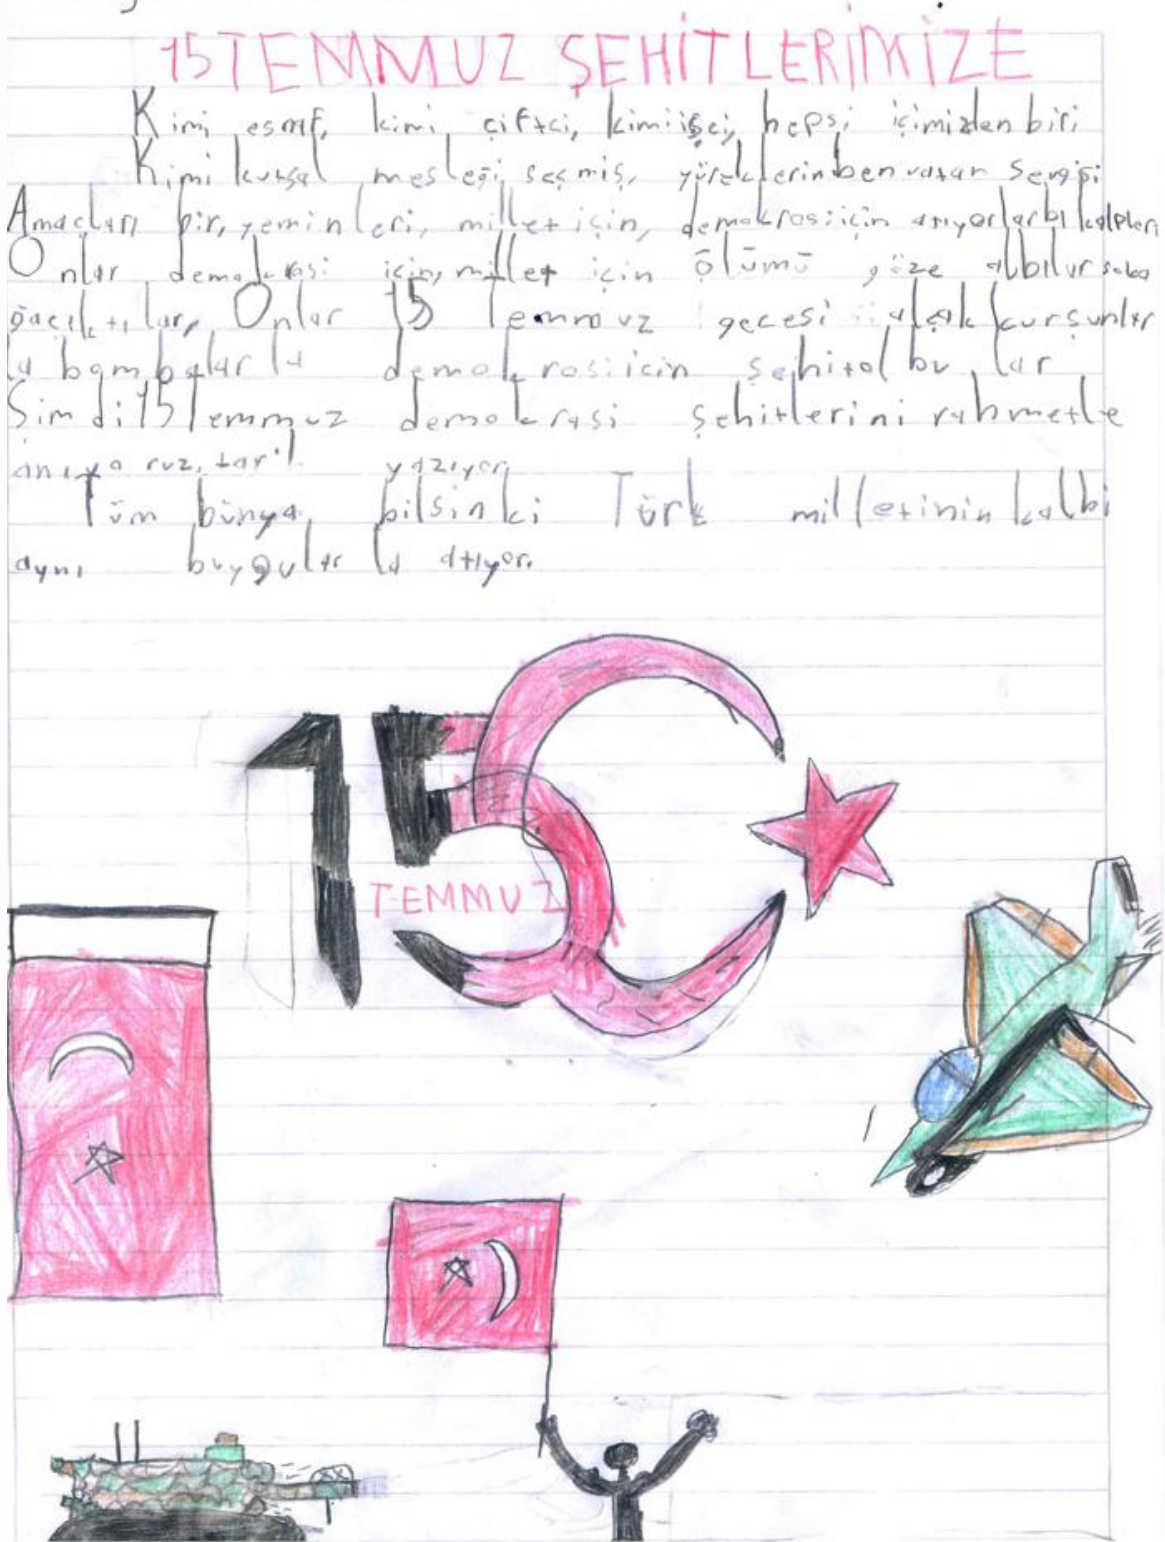 15 TEMMUZ ŞEHİTLERİMİZE
Kimi esnaf, kimi çiftci, kimi işçi, hepsi içimizden biri
Kimi kutsal mesleği seçmiş, yüreklerinben vatan sevgisi
Amaçları bir, yeminleri, millet için, demokrasi için atıyorlarbı kalpleri
Onlar demokrasi için, millet için ölümü göze albılur soka
ğaçıktılar, Onlar 15 Temmuz gecesi alçak kurşunlar
la bambalar la demokrasi icin şehitol bu lar
Şimdi 15 Temmuz demokrasi şehitlerini rahmetle
anıyo ruz, yazıyor,
Tüm bünya bilsin ki Türk milletinin kalbi
aynı buygular la atıyor.
15
TEMMUZ